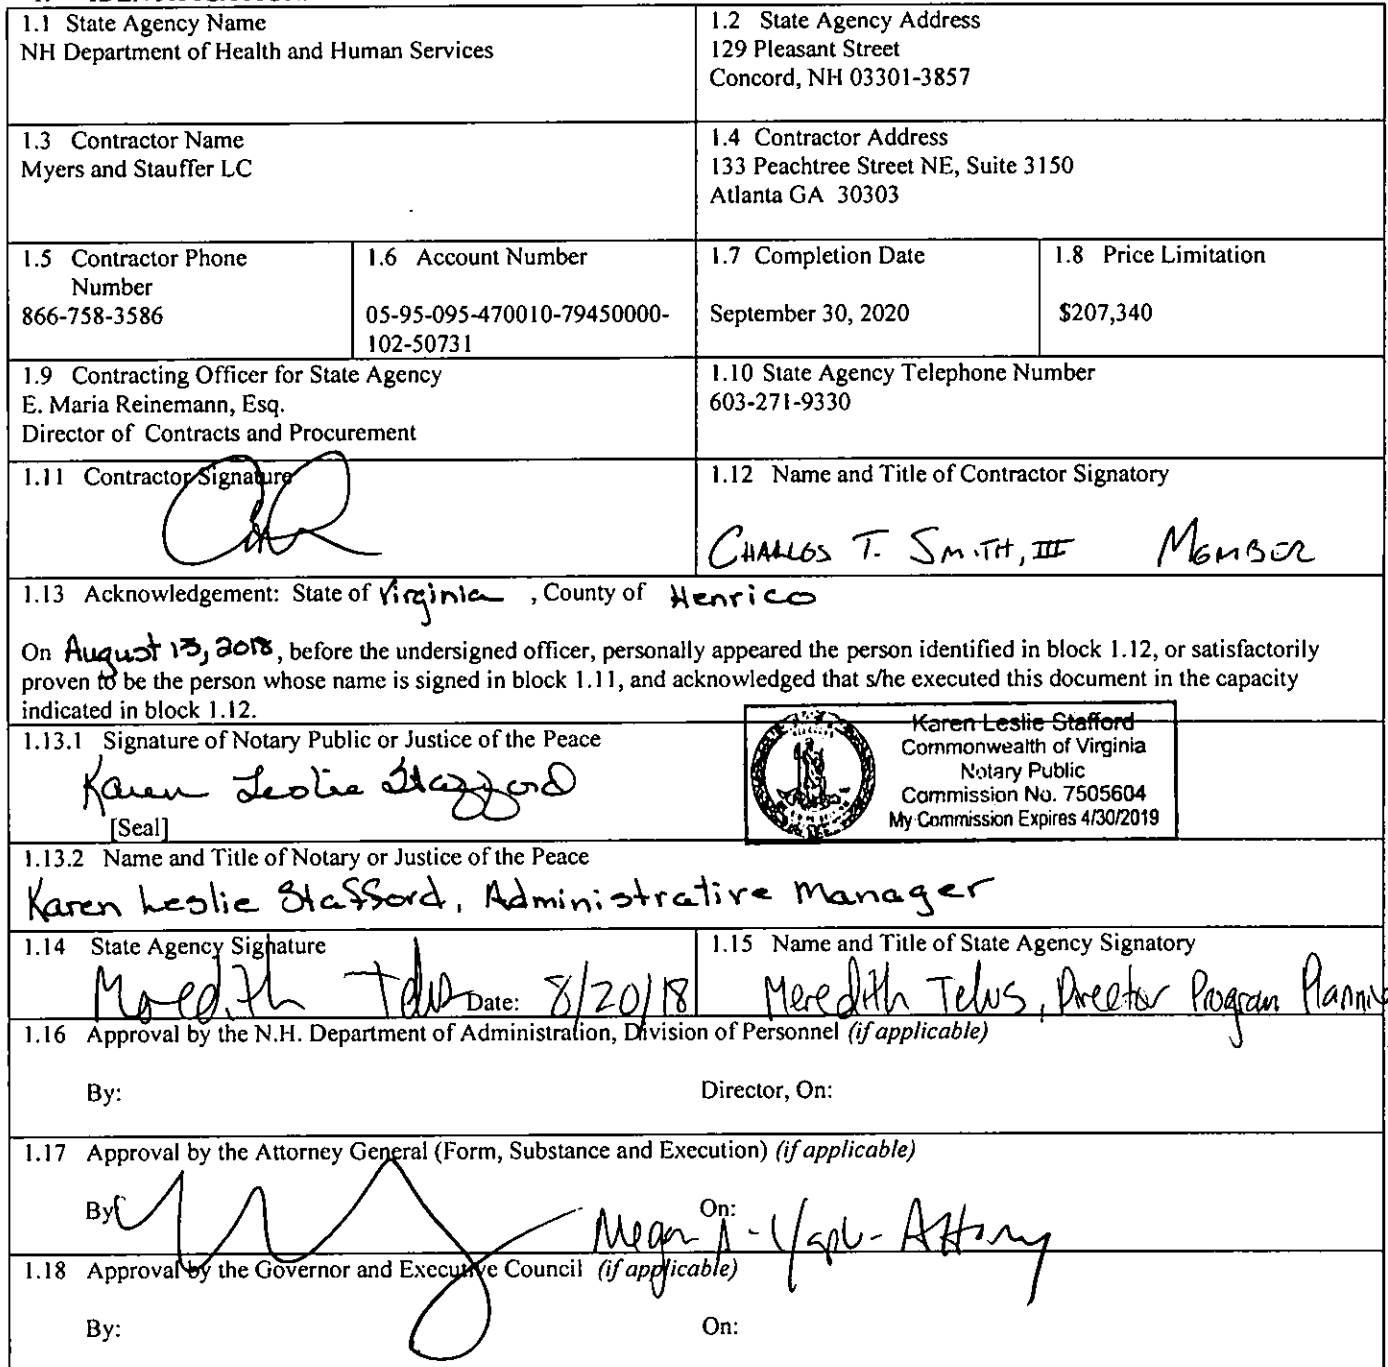 1.1 State Agency Name
NH Department of Health and Human Services
1.2 State Agency Address
129 Pleasant Street
Concord, NH 03301-3857
1.3 Contractor Name
Myers and Stauffer LC
1.4 Contractor Address
133 Peachtree Street NE, Suite 3150
Atlanta GA 30303
1.5 Contractor Phone
Number
866-758-3586
1.6 Account Number
05-95-095-470010-79450000-
102-50731
1.7 Completion Date
September 30, 2020
1.8 Price Limitation
$207,340
1.9 Contracting Officer for State Agency
E. Maria Reinemann, Esq.
Director of Contracts and Procurement
1.10 State Agency Telephone Number
603-271-9330
1.11 Contractor Signature
1.12 Name and Title of Contractor Signatory
CHARLES T. SMITH, III MEMBER
1.13 Acknowledgement: State of Virginia , County of Henrico
On August 13, 2018, before the undersigned officer, personally appeared the person identified in block 1.12, or satisfactorily
proven to be the person whose name is signed in block 1.11, and acknowledged that s/he executed this document in the capacity
indicated in block 1.12.
1.13.1 Signature of Notary Public or Justice of the Peace
Karen Leslie Stafford
[Seal]
Karen Leslie Stafford
Commonwealth of Virginia
Notary Public
Commission No. 7505604
My Commission Expires 4/30/2019
1.13.2 Name and Title of Notary or Justice of the Peace
Karen Leslie Stafford, Administrative Manager
1.14 State Agency Signature
Meredith Telus Date: 8/20/18
1.15 Name and Title of State Agency Signatory
Meredith Telus, Director Program Planning
1.16 Approval by the N.H. Department of Administration, Division of Personnel (if applicable)
By: Director, On:
1.17 Approval by the Attorney General (Form, Substance and Execution) (if applicable)
By: On:
Megan A - Attorney
1.18 Approval by the Governor and Executive Council (if applicable)
By: On: